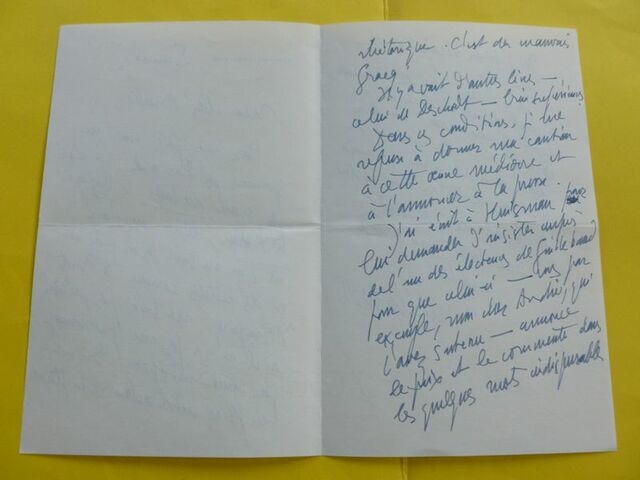 rhétorique. C'est du mauvais
Gracq.
Il y avait d'autres livres —
celui de — bien supérieurs.
Dans ces conditions, je me
refuse à donner ma caution
à cette œuvre médiocre et
à l'annoncer à la presse.
J'ai écrit à Huisman pour
lui demander d'insister auprès
de l'un des électeurs de
pour que celui-ci — vous par
exemple, mon cher André, qui
l'avez soutenu — annonce
le prix et le commente dans
les quelques mots indispensables